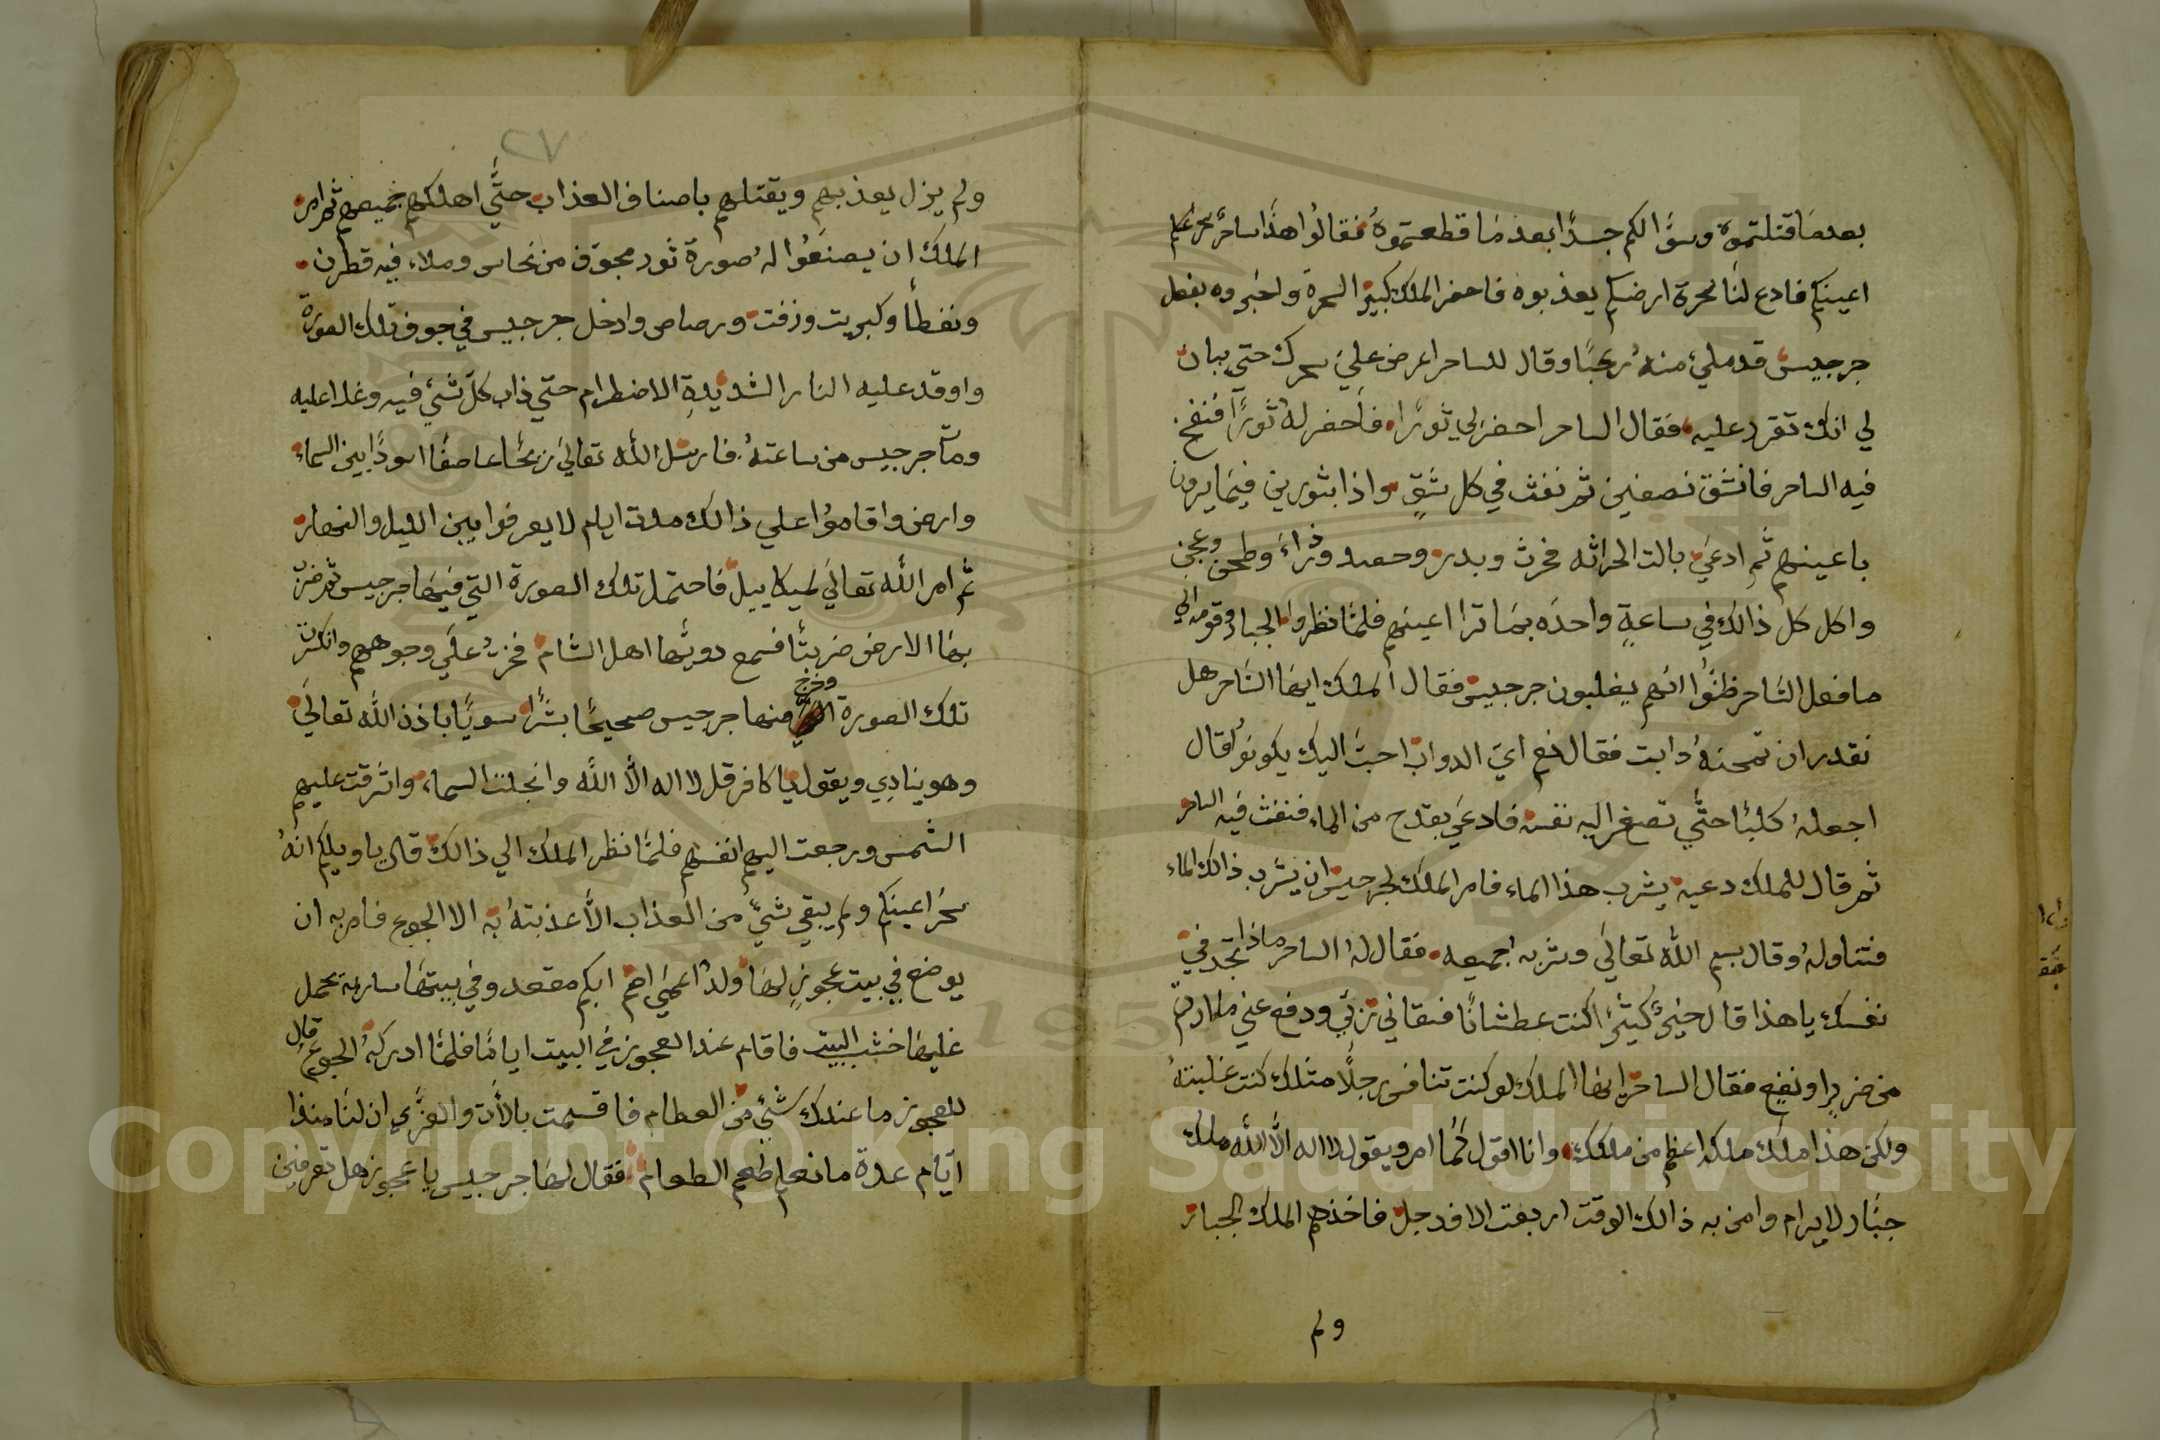 بعدما قتلتموه وسوا لكم جسدًا بعد ما قطعتموه فقالوا هذا ساحر سحر عليكم
اعينكم فادع لنا سحرة ارضكم يعذبوه فاحضر الملك كبير السحرة واخبروه بفعل
جرجيس قد ملئ منه رعبًا وقال للساحر اعرض علي سحرك حتي يبان
لي انك تقرد عليه فقال الساحر احضر لي ثورًا فاحضر له ثورًا فنفخ
فيه الساحر فانشق نصفين ثم نفث في كل شقٍ واذا بثورين فيما يرون
باعينهم ثم ادعي بالت الحراثه فحرث وبدر وحصد وذراء وطحن وعجن
واكل كل ذالك في ساعةٍ واحده بما ترا اعينهم فلما نظروا الجبار وقومه الي
ما فعل الساحر ظنوا انهم يغلبون جرجيس فقال الملك ايها الساحر هل
نقدر ان تمحنه دابت فقال نعم اي الدواب احبّ اليك يكونو قال
اجعله كلبًا حتّي تصغر اليه نفسه فادعي بقدح من الماء فنفث فيه الساحر
ثم قال للملك دعيه يشرب هذا الماء فامر الملك لجرجيس ان يشرب ذالك الماء
فتناوله وقال بسم الله تعالي وشربه جميعه فقال له الساحر ماذا تجد في
نفسك يا هذا قال خيرٌ كثيرٌ كنت عطشانًا فسقاني ربي ودفع عني ما اردتم
من ضرٍ او نفع فقال الساحر ايها الملك لو كنت تنافس رجلًا مثلك كنت غلبته
ولكن هذا ملك ملكه اعظم من ملكك وانا اقول كما امر ويقول لا اله الا الله ملك
جبّار لا يرام وامن به ذالك الوقت اربعت الاف رجل فاخذهم الملك الجبار
ولم
٢٧
ولم يزل يعذبهم ويقتلهم باصناف العذاب حتّي اهلكهم جميعهم ثم امر
الملك ان يصنعوا له صورة ثور مجوف من نحاس وملاء فيه قطرن
ونفطًا وكبريت وزفت ورصاص وادخل جرجيس في جوف تلك الصورة
واوقد عليه النار الشديدة الاضطرام حتي ذاب كلّ شئي فيه وغلا عليه
ومات جرجيس من ساعته فارسل الله تعالي ريحًا عاصفًا اسودًا بين السماء
وارض واقاموا علي ذالك مدت ايام لا يعرفوا بين الليل والنهار
ثم امر الله تعالي لميكاييل فاحتمل تلك الصورة التي فيها جرجيس ثم ضرب
بها الارض ضربتًا فسمع دويّها اهل الشام فخرّ علي وجوههم وانكسرت
تلك الصورة وخرج منها جرجيس صحيحًا بشرًا سويًا باذن الله تعالي
وهو ينادي ويقول يا كافر قل لا اله الا الله وانجلت السماء واشرقت عليهم
الشمس ورجعت اليهم انفسهم فلما نظر الملك الي ذالك قال يا ويلكم انه
سحر اعينكم ولم يبقي شيٌ من العذاب الا عذبته به الا الجوع فامر به ان
يوضع في بيت عجوزٍ لها ولد اعمي اصم ابكم مقعد وفي بيتها سارية تحمل
عليها خشب البيت فاقام عند العجوز في البيت ايامًا فلما ادركه الجوع قال
للعجوز ما عندك شئي من الطعام فاقسمت بالات والعزّي ان لنا منذ
ايّام عدة ما نعلم طعم الطعام فقال لها جرجيس يا عجوز هل تعرفين